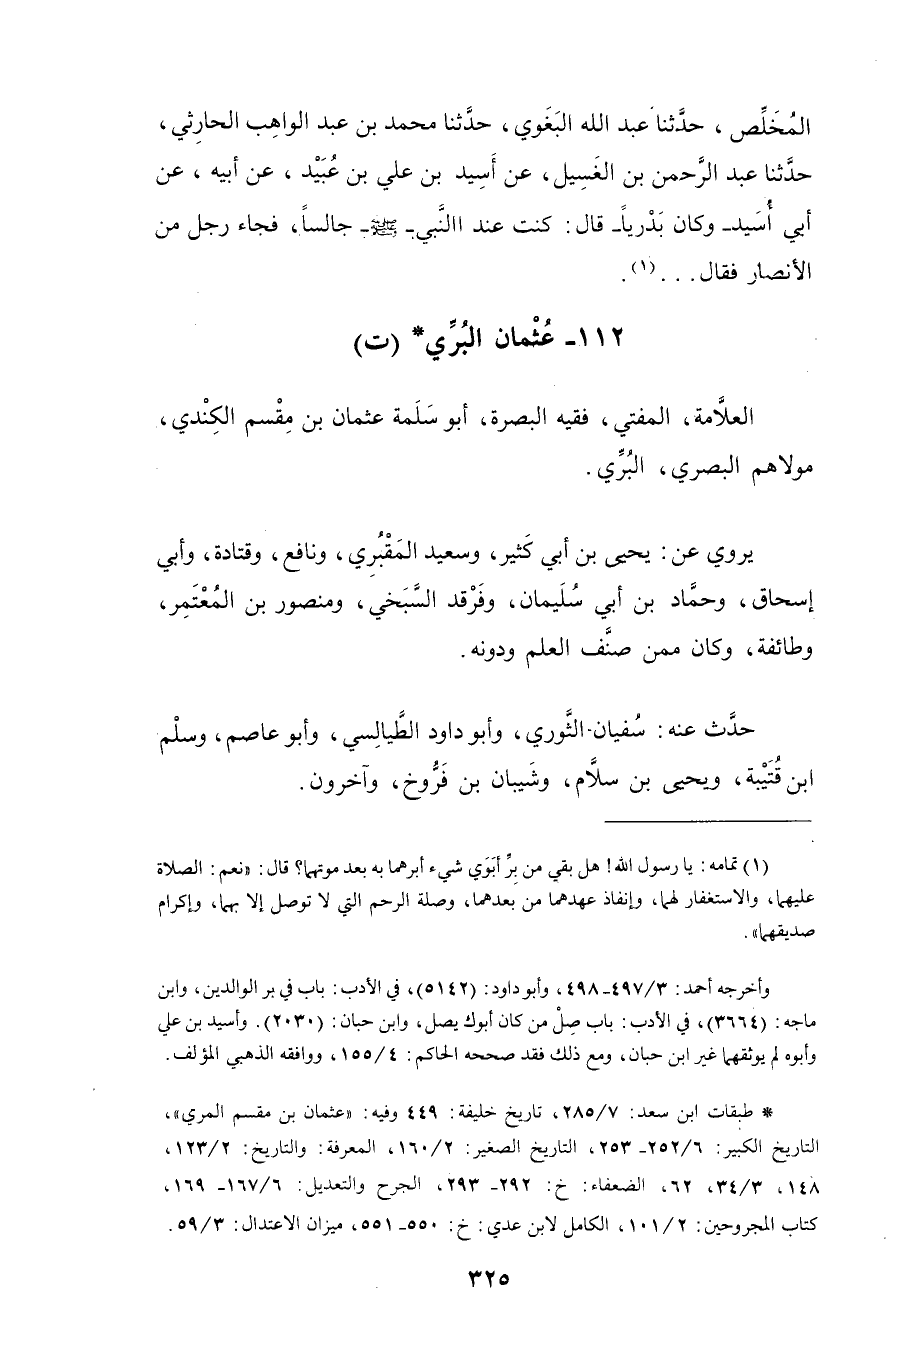 المُخَلِّص ، حدَّثنا عبد الله البَغَوي ، حدَّثنا محمد بن عبد الواهِب الحارِثي ،
حدَّثنا عبد الرَّحمن بن الغَسِيل، عن أَسِيد بن علي بن عُبَيْد ، عن أبيه ، عن
أبي أُسَيد۔ وكان بَدْرياً۔ قال: كنت عند االنَّبي۔ ﷺ۔ جالساً، فجاء رجل من
الأنصار فقال. . . (١).
١١٢۔ عُثْمان البُرِّي* (ت)
العلاَّمة، المفتي ، فقيه البصرة، أبو سَلَمة عثمان بن مِقْسم الكِنْدي ،
مولاهم البصري، البُرِّي .
يروي عن: يحيى بن أبي كَثير، وسعيد المَقْبُرِي ، ونافع ، وقتادة، وأبي
إسحاق ، وحمَّاد بن أبي سُلَيمان، وفَرْقد السَّبَخي ، ومنصور بن المُعْتَمِر،
وطائفة، وكان ممن صنَّف العلم ودونه.
حدَّث عنه: سُفيان الثَّوري ، وأبو داود الطَّيالِسي ، وأبو عاصم ، وسلْم
ابن قُتَيْبة، ويحيى بن سلاَّم، وشَيبان بن فَرُّوخ، وآخرون.
(١) تمامه: يا رسول الله! هل بقي من بِرِّ أبَوَي شيء أبرهما به بعد موتهما؟ قال: «نعم: الصلاة
عليهما، والاستغفار لهما، وإنفاذ عهدهما من بعدهما، وصلة الرحم التي لا توصل إلا بهما، وإكرام
صديقهما».
وأخرجه أحمد: ٤٩٧/٣۔ ٤٩٨، وأبو داود: (٥١٤٢)، في الأدب: باب في بر الوالدين، وابن
ماجه: (٣٦٦٤)، في الأدب: باب صِلْ من كان أبوك يصل، وابن حبان: (٢٠٣٠). وأسيد بن علي
وأبوه لم يوثقهما غير ابن حبان، ومع ذلك فقد صححه الحاكم: ١٥٥/٤، ووافقه الذهبي المؤلف.
* طبقات ابن سعد: ٢٨٥/٧، تاريخ خليفة: ٤٤٩ وفيه: «عثمان بن مقسم المري»،
التاريخ الكبير: ٢٥٢/٦۔ ٢٥٣، التاريخ الصغير: ١٦٠/٢، المعرفة: والتاريخ: ١٢٣/٢،
١٤٨، ٣٤/٣، ٦٢، الضعفاء: خ: ٢٩٢۔ ٢٩٣، الجرح والتعديل: ١٦٧/٦۔ ١٦٩،
كتاب المجروحين: ١٠١/٢، الكامل لابن عدي: خ: ٥٥٠۔ ٥٥١، ميزان الاعتدال: ٥٩/٣.
٣٢٥